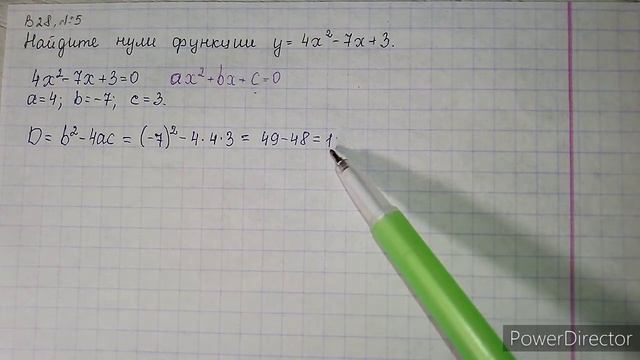 В28, №5
Найдите нули функции y = 4x² - 7x + 3.
4x² - 7x + 3 = 0 ax² + bx + c = 0
a = 4; b = -7; c = 3.
D = b² - 4ac = (-7)² - 4·4·3 = 49 - 48 = 1
PowerDirector